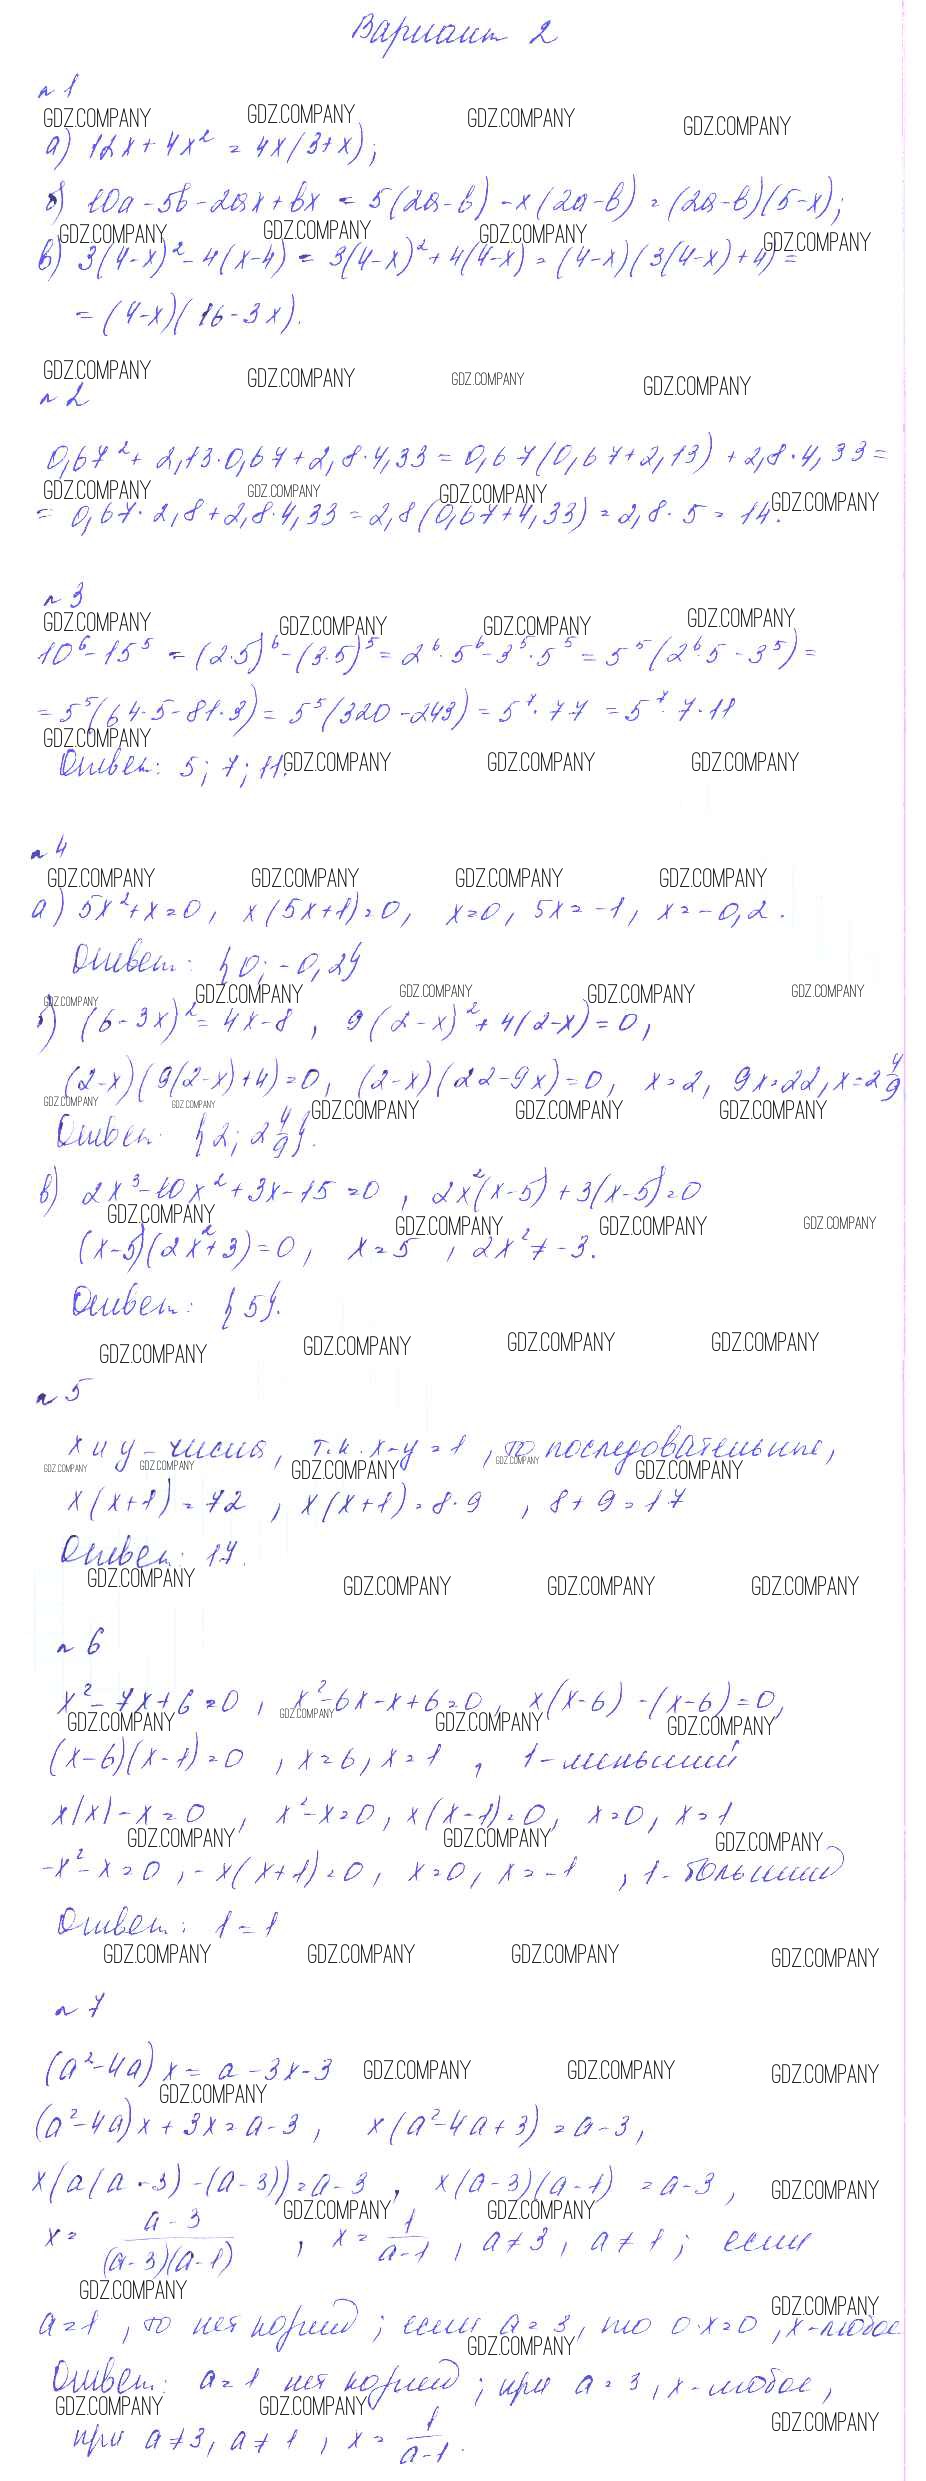 Вариант 2
n 1
GDZ.COMPANY GDZ.COMPANY GDZ.COMPANY GDZ.COMPANY
а) 12x + 4x² = 4x(3+x);
б) 10a - 5b - 2ax + bx = 5(2a-b) - x(2a-b) = (2a-b)(5-x);
GDZ.COMPANY GDZ.COMPANY GDZ.COMPANY GDZ.COMPANY
в) 3(4-x)² - 4(x-4) = 3(4-x)² + 4(4-x) = (4-x)(3(4-x)+4) =
= (4-x)(16-3x).
GDZ.COMPANY GDZ.COMPANY GDZ.COMPANY GDZ.COMPANY
n 2
0,67² + 2,13·0,67 + 2,8·4,33 = 0,67(0,67+2,13) + 2,8·4,33 =
GDZ.COMPANY GDZ.COMPANY GDZ.COMPANY GDZ.COMPANY
= 0,67·2,8 + 2,8·4,33 = 2,8(0,67+4,33) = 2,8·5 = 14.
n 3
GDZ.COMPANY GDZ.COMPANY GDZ.COMPANY GDZ.COMPANY
10⁶ - 15⁵ = (2·5)⁶ - (3·5)⁵ = 2⁶·5⁶ - 3⁵·5⁵ = 5⁵(2⁶·5 - 3⁵) =
= 5⁵(64·5 - 81·3) = 5⁵(320-243) = 5⁷·77 = 5⁷·7·11
GDZ.COMPANY
Ответ: 5; 7; 11. GDZ.COMPANY GDZ.COMPANY GDZ.COMPANY
n 4
GDZ.COMPANY GDZ.COMPANY GDZ.COMPANY GDZ.COMPANY
а) 5x² + x = 0, x(5x+1) = 0, x = 0, 5x = -1, x = -0,2.
Ответ: {0; -0,2}
GDZ.COMPANY GDZ.COMPANY GDZ.COMPANY GDZ.COMPANY GDZ.COMPANY
б) (6-3x)² = 4x-8, 9(2-x)² + 4(2-x) = 0,
(2-x)(9(2-x)+4) = 0, (2-x)(22-9x) = 0, x = 2, 9x = 22, x = 2 4/9
GDZ.COMPANY GDZ.COMPANY GDZ.COMPANY GDZ.COMPANY GDZ.COMPANY
Ответ: {2; 2 4/9}.
в) 2x³ - 10x² + 3x - 15 = 0, 2x²(x-5) + 3(x-5) = 0
GDZ.COMPANY GDZ.COMPANY GDZ.COMPANY GDZ.COMPANY
(x-5)(2x²+3) = 0, x = 5, 2x² ≠ -3.
Ответ: {5}.
GDZ.COMPANY GDZ.COMPANY GDZ.COMPANY GDZ.COMPANY
n 5
x и y - числа, т.к. x-y = 1, то последовательные,
GDZ.COMPANY GDZ.COMPANY GDZ.COMPANY GDZ.COMPANY GDZ.COMPANY
x(x+1) = 72, x(x+1) = 8·9, 8+9 = 17
Ответ: 17.
GDZ.COMPANY GDZ.COMPANY GDZ.COMPANY GDZ.COMPANY
n 6
x² - 7x + 6 = 0, x² - 6x - x + 6 = 0, x(x-6) - (x-6) = 0,
GDZ.COMPANY GDZ.COMPANY GDZ.COMPANY GDZ.COMPANY
(x-6)(x-1) = 0, x = 6, x = 1, 1 - меньший
x|x| - x = 0, x² - x = 0, x(x-1) = 0, x = 0, x = 1
GDZ.COMPANY GDZ.COMPANY GDZ.COMPANY
-x² - x = 0, -x(x+1) = 0, x = 0, x = -1, 1 - больший
Ответ: 1 = 1
GDZ.COMPANY GDZ.COMPANY GDZ.COMPANY GDZ.COMPANY
n 7
(a²-4a)x = a - 3x - 3 GDZ.COMPANY GDZ.COMPANY GDZ.COMPANY
GDZ.COMPANY
(a²-4a)x + 3x = a-3, x(a²-4a+3) = a-3,
x(a(a-3) - (a-3)) = a-3, x(a-3)(a-1) = a-3, GDZ.COMPANY
GDZ.COMPANY GDZ.COMPANY
x = (a-3)/((a-3)(a-1)), x = 1/(a-1), a ≠ 3, a ≠ 1; если
GDZ.COMPANY GDZ.COMPANY
a = 1, то нет корней; если a = 3, то 0·x = 0, x - любое
GDZ.COMPANY
Ответ: a = 1 нет корней; при a = 3, x - любое,
GDZ.COMPANY GDZ.COMPANY GDZ.COMPANY
при a ≠ 3, a ≠ 1, x = 1/(a-1).